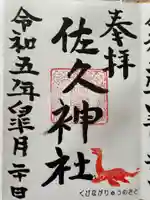 奉拝
佐久神社
令和五年皐月
くびながりゅうのさと